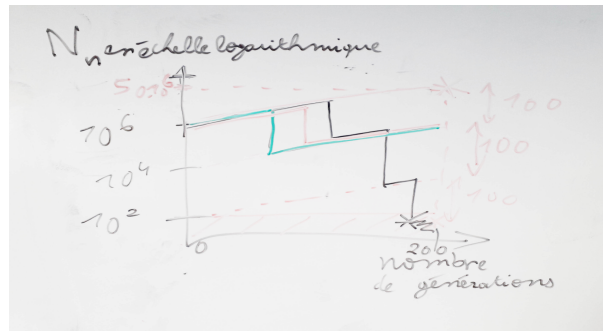 Nn en échelle logarithmique
5 0 10^6
10^6
100
100
10^4
100
10^2
0
200
nombre
de générations